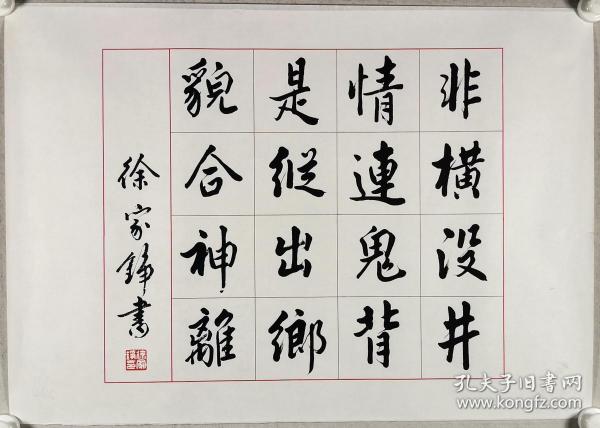 非橫没井
情連鬼背
是縱出鄉
貌合神離
徐家錚書
孔夫子旧書网
www.kongfz.com